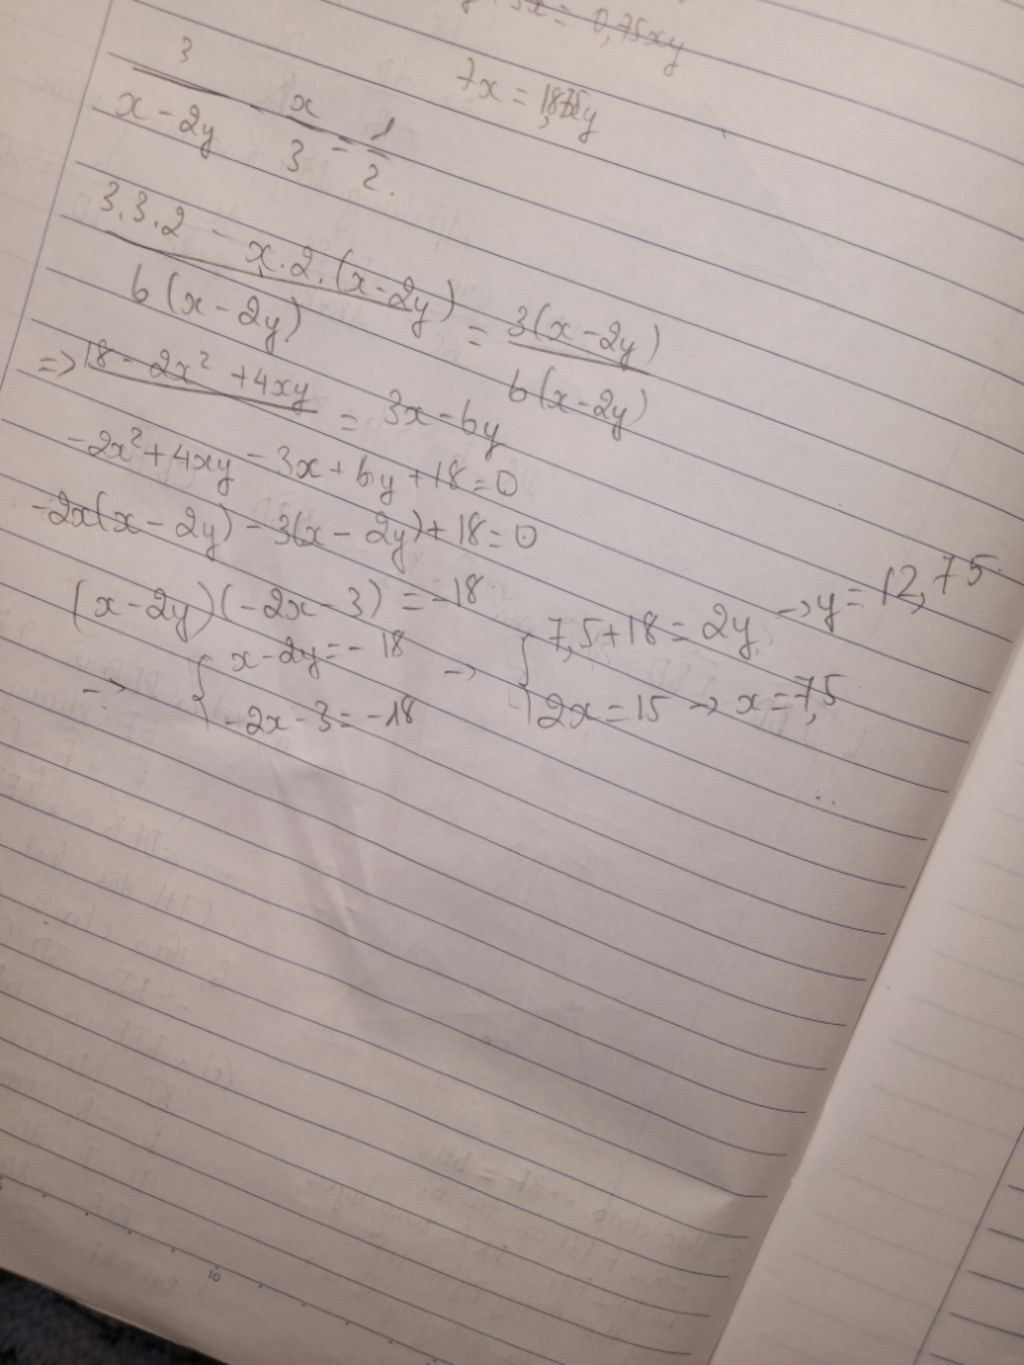 3x = 0,75xy
7x =
3/(x - 2y) - x/3 = 1/2.
(3.3.2 - x.2.(x - 2y))/(6(x - 2y)) = 3(x - 2y)/(6(x - 2y))
=> 18 - 2x² + 4xy = 3x - 6y
-2x² + 4xy - 3x + 6y + 18 = 0
-2x(x - 2y) - 3(x - 2y) + 18 = 0
(x - 2y)(-2x - 3) = -18
-> { x - 2y = -18 -> { 7,5 + 18 = 2y -> y = 12,75
-2x - 3 = -18 2x = 15 -> x = 7,5
10